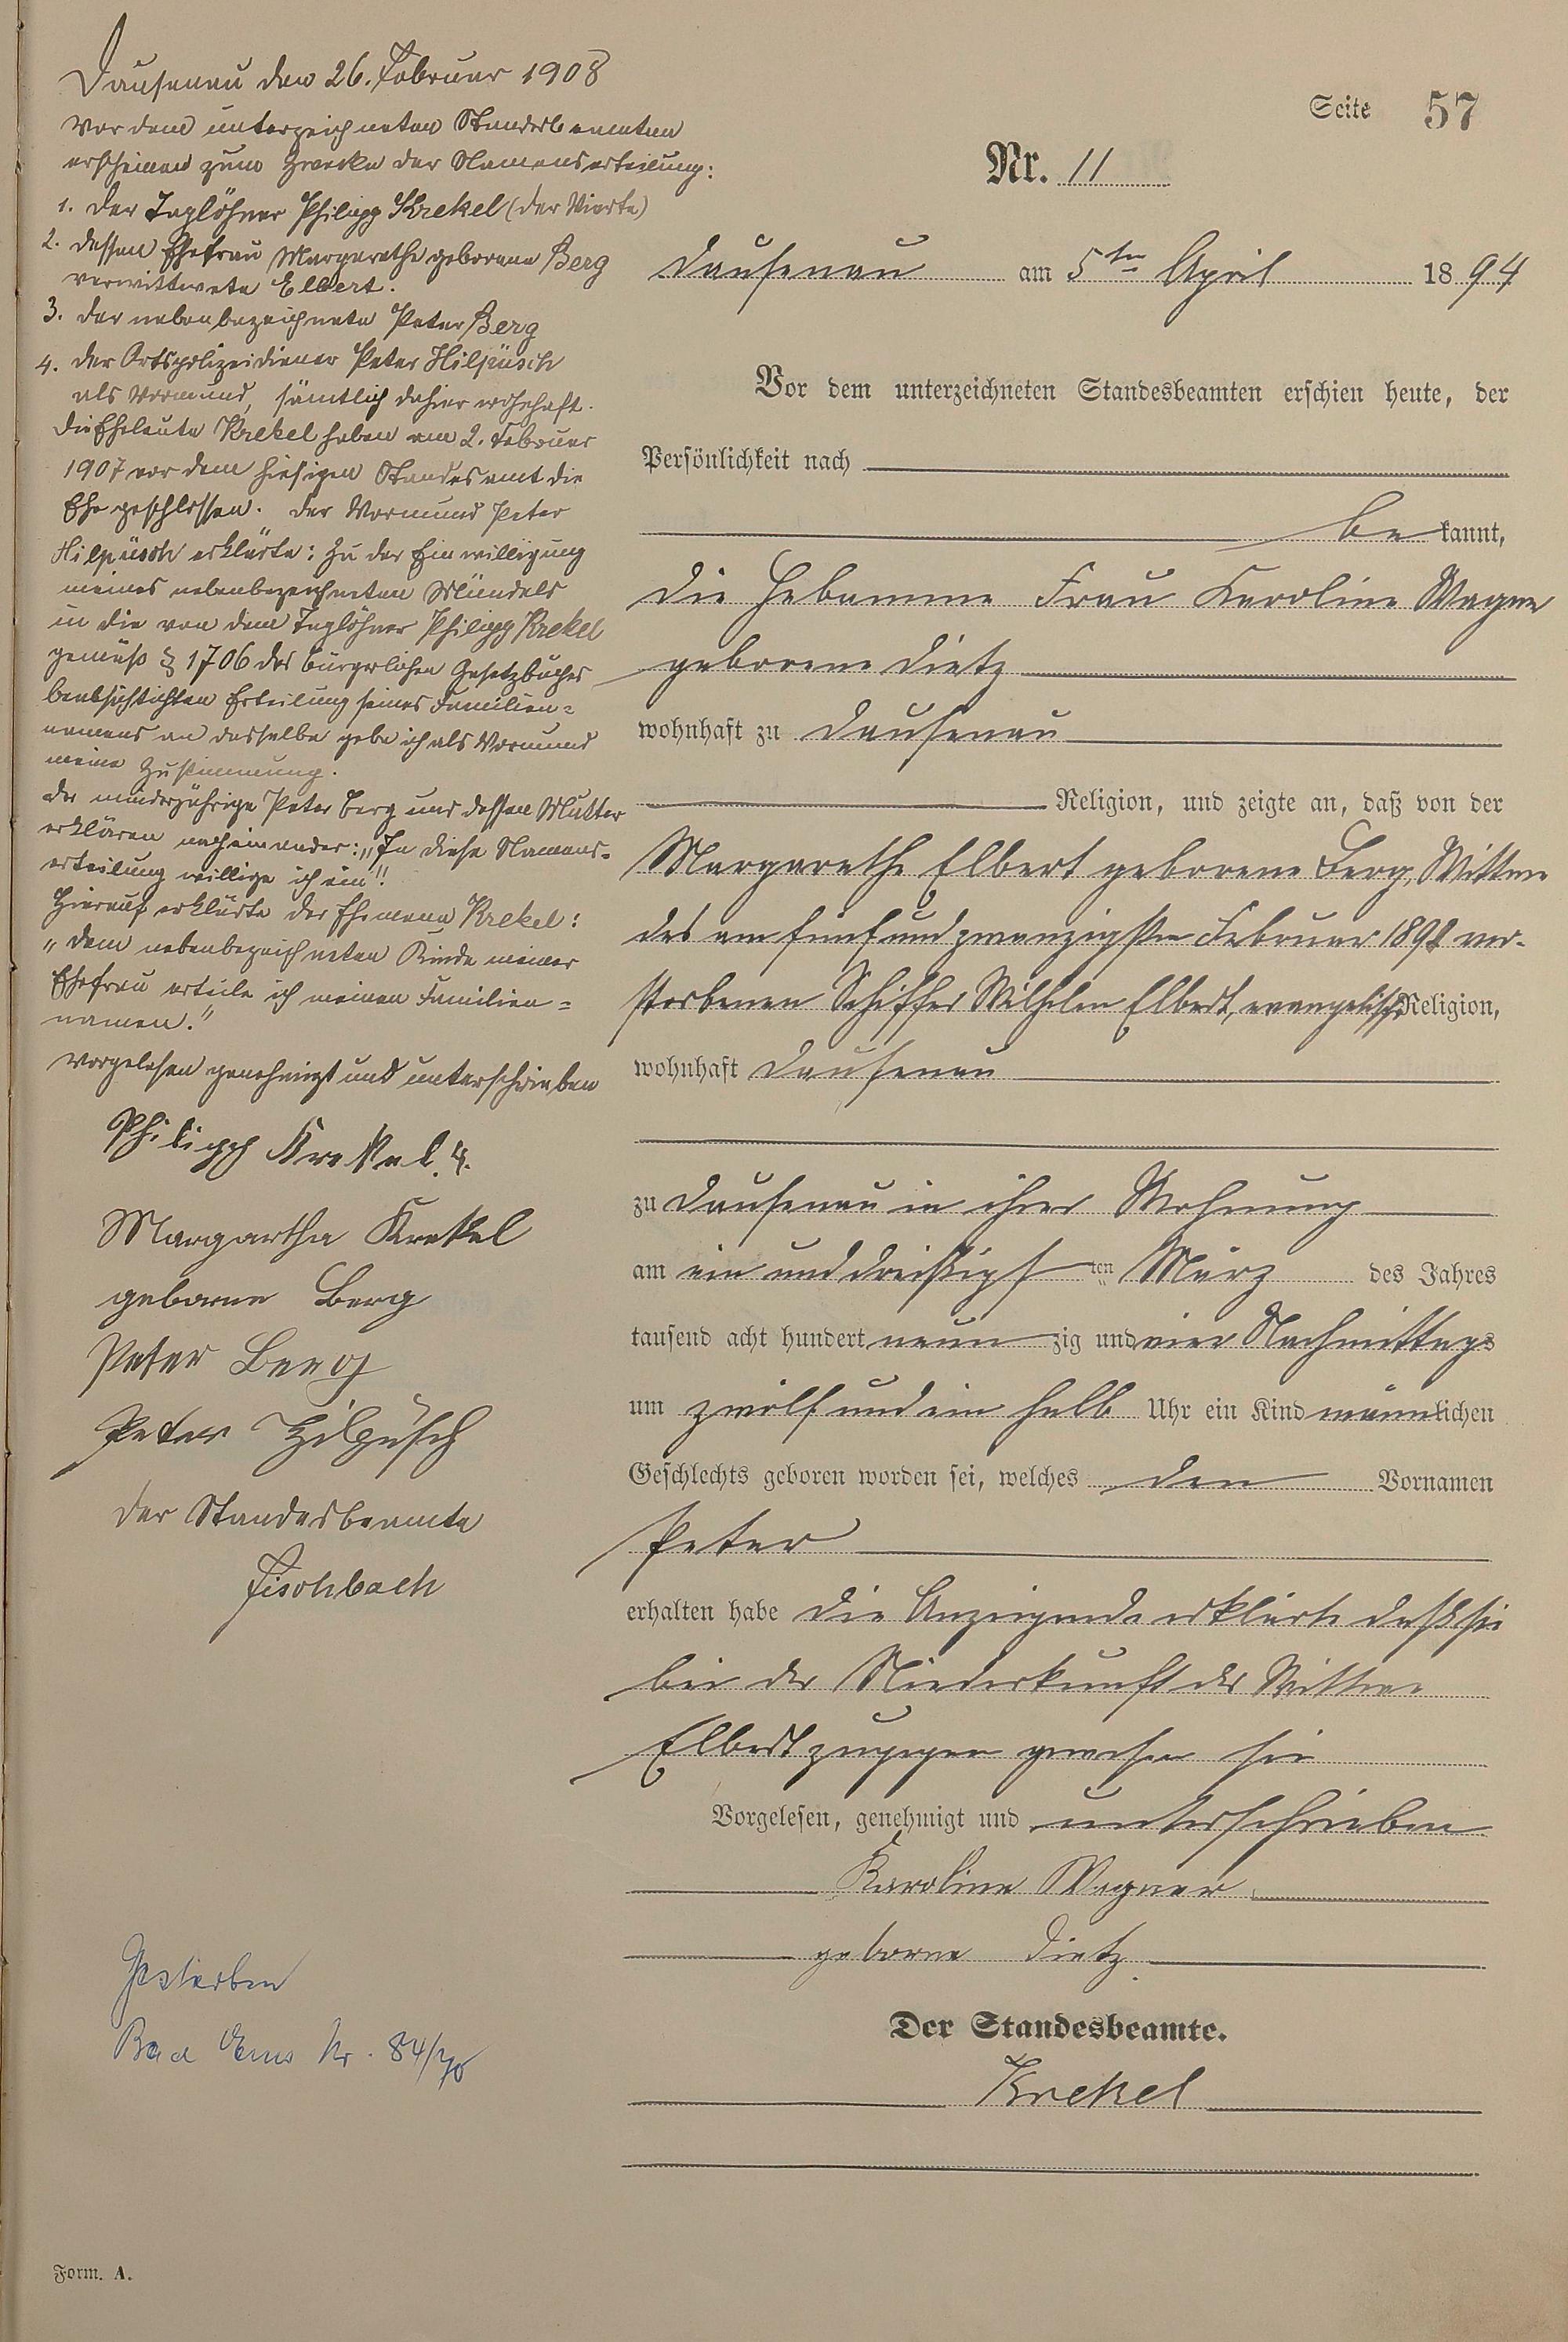 Dausenau den 26. Februar 1908
Vor dem unterzeichneten Standesbeamten
erscheinen zum Zwecke der Namenserteilung:
1. der Taglöhner Philipp Krekel (der Vierte)
2. dessen Ehefrau Margarethe geborene Berg
verwittwete Elbert.
3. der nebenbezeichnete Peter Berg
4. der Ortspolizeidiener Peter Hilpüsch
als Vormund, sämtlich dahier wohnhaft.
Die Eheleute Krekel haben am 2. Februar
1907 vor dem hiesigen Standesamt die
Ehe geschlossen. Der Vormund Peter
Hilpüsch erklärte: Zu der Einwilligung
meines nebenbezeichneten Mündels
in die von dem Taglöhner Philipp Krekel
gemäß § 1706 des Bürgerlichen Gesetzbuches
beabsichtigten Erteilung seines Familien=
namens an dasselbe gebe ich als Vormund
meine Zustimmung.
Der minderjährige Peter Berg und dessen Mutter
erklären nacheinander: „In diese Namens=
erteilung willige ich ein".
Hierauf erklärte der Ehemann Krekel:
„Dem nebenbezeichneten Kinde meiner
Ehefrau erteile ich meinen Familien=
namen."
Vorgelesen genehmigt und unterschrieben
Philipp Krekel. 4.
Margaretha Krekel
geborne Berg
Peter Berg
Peter Hilpüsch
Der Standesbeamte
Fischbach
Gestorben
Bad Ems Nr. 84/70
Seite 57
Nr. 11
Dausenau am 5ten April 1894
Vor dem unterzeichneten Standesbeamten erschien heute, der
Persönlichkeit nach
be kannt,
die Hebamme Frau Karoline Wagner
geborene Dietz
wohnhaft zu Dausenau
Religion, und zeigte an, daß von der
Margarethe Elbert geborene Berg, Wittwe
des am fünfundzwanzigsten Februar 1891 ver-
storbenen Schiffer Wilhelm Elbert, evangelische Religion,
wohnhaft Dausenau
zu Dausenau in ihrer Wohnung
am ein und dreißigst ten März des Jahres
tausend acht hundert neun zig und vier Nachmittags
um zwölf und ein halb Uhr ein Kind männlichen
Geschlechts geboren worden sei, welches den Vornamen
Peter
erhalten habe Die Anzeigende erklärte daß sie
bei der Niederkunft der Wittwe
Elbert zugegen gewesen sei
Vorgelesen, genehmigt und unterschrieben
Karoline Wagner
geborne Dietz
Der Standesbeamte.
Krekel
Form. A.